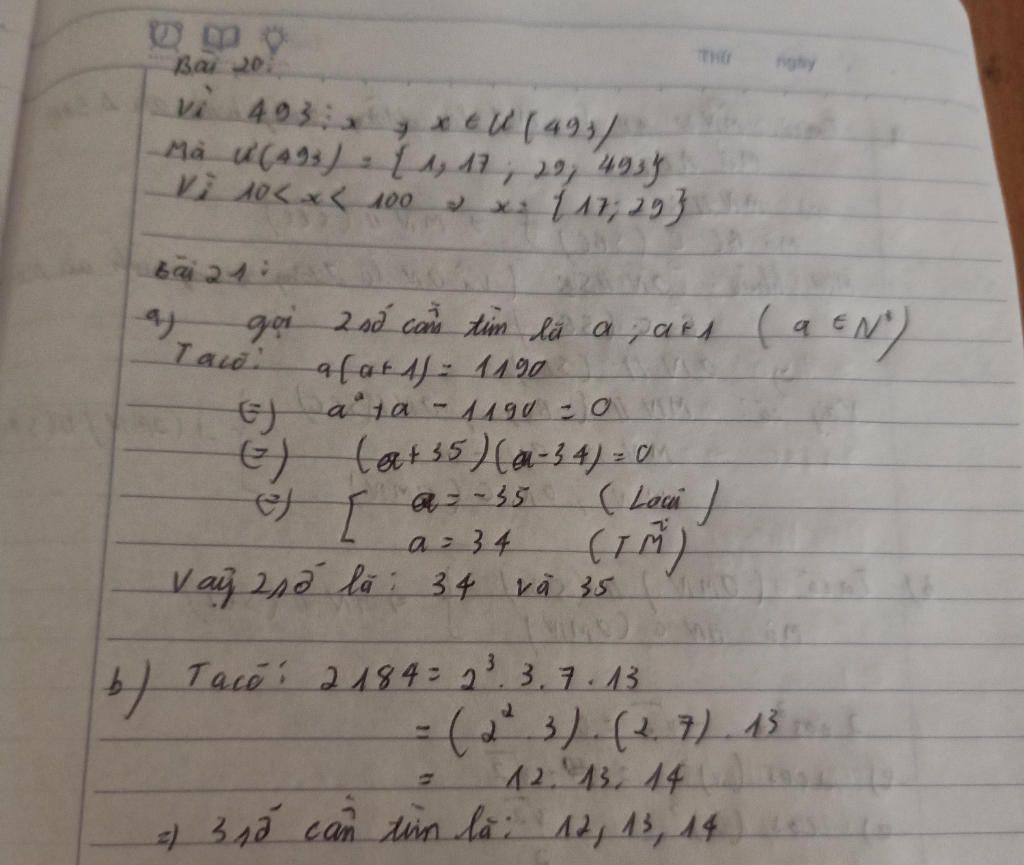 Thứ ngày
Bài 20:
Vì 493 ⋮ x , x ∈ Ư(493)
Mà Ư(493) = {1, 17 ; 29, 493}
Vì 10 < x < 100 ⇒ x = {17; 29}
Bài 21:
a) gọi 2 số cần tìm là a ; a+1 ( a ∈ N*)
Ta có: a(a+1) = 1190
(=) a² + a - 1190 = 0
(=) (a+35)(a-34) = 0
(=) [ a = -35 (Loại)
a = 34 (TM)
Vậy 2 số là: 34 và 35
b) Ta có: 2184 = 2³ . 3 . 7 . 13
= (2² . 3) . (2 . 7) . 13
= 12 . 13 . 14
=) 3 số cần tìm là: 12, 13, 14